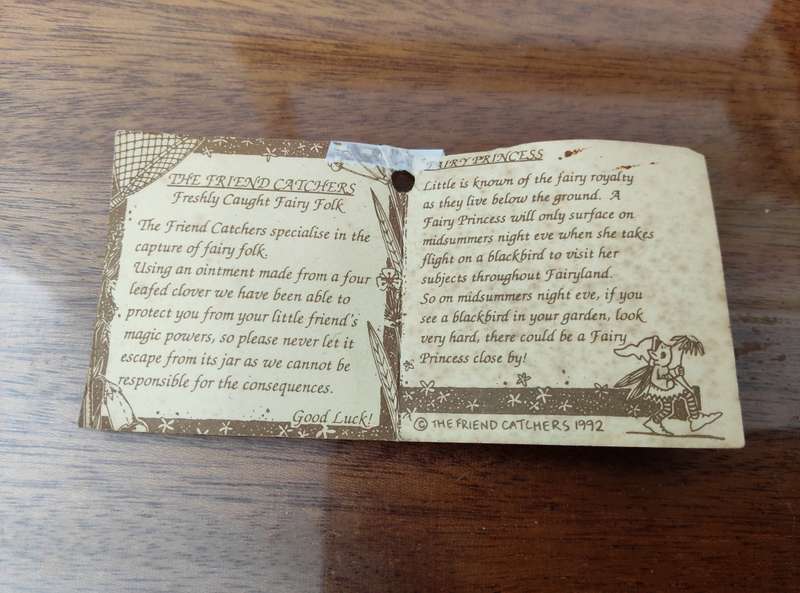 THE FRIEND CATCHERS
Freshly Caught Fairy Folk
The Friend Catchers specialise in the
capture of fairy folk.
Using an ointment made from a four
leafed clover we have been able to
protect you from your little friend's
magic powers, so please never let it
escape from its jar as we cannot be
responsible for the consequences.
Good Luck!
FAIRY PRINCESS
Little is known of the fairy royalty
as they live below the ground. A
Fairy Princess will only surface on
midsummers night eve when she takes
flight on a blackbird to visit her
subjects throughout Fairyland.
So on midsummers night eve, if you
see a blackbird in your garden, look
very hard, there could be a Fairy
Princess close by!
© THE FRIEND CATCHERS 1992